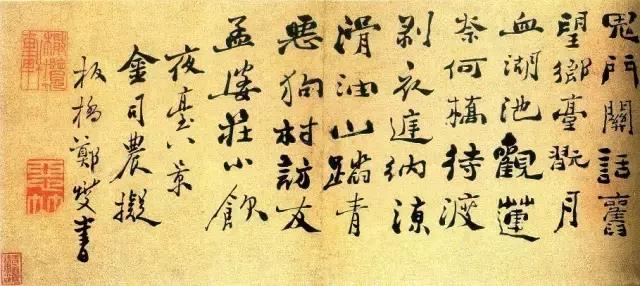 鬼門關話舊
望鄉臺翫月
血湖池觀蓮
奈何橋待渡
剥衣亭納涼
滑油山踏青
惡狗村訪友
孟婆莊小飲
夜臺八景
金司農擬
板橋鄭燮書